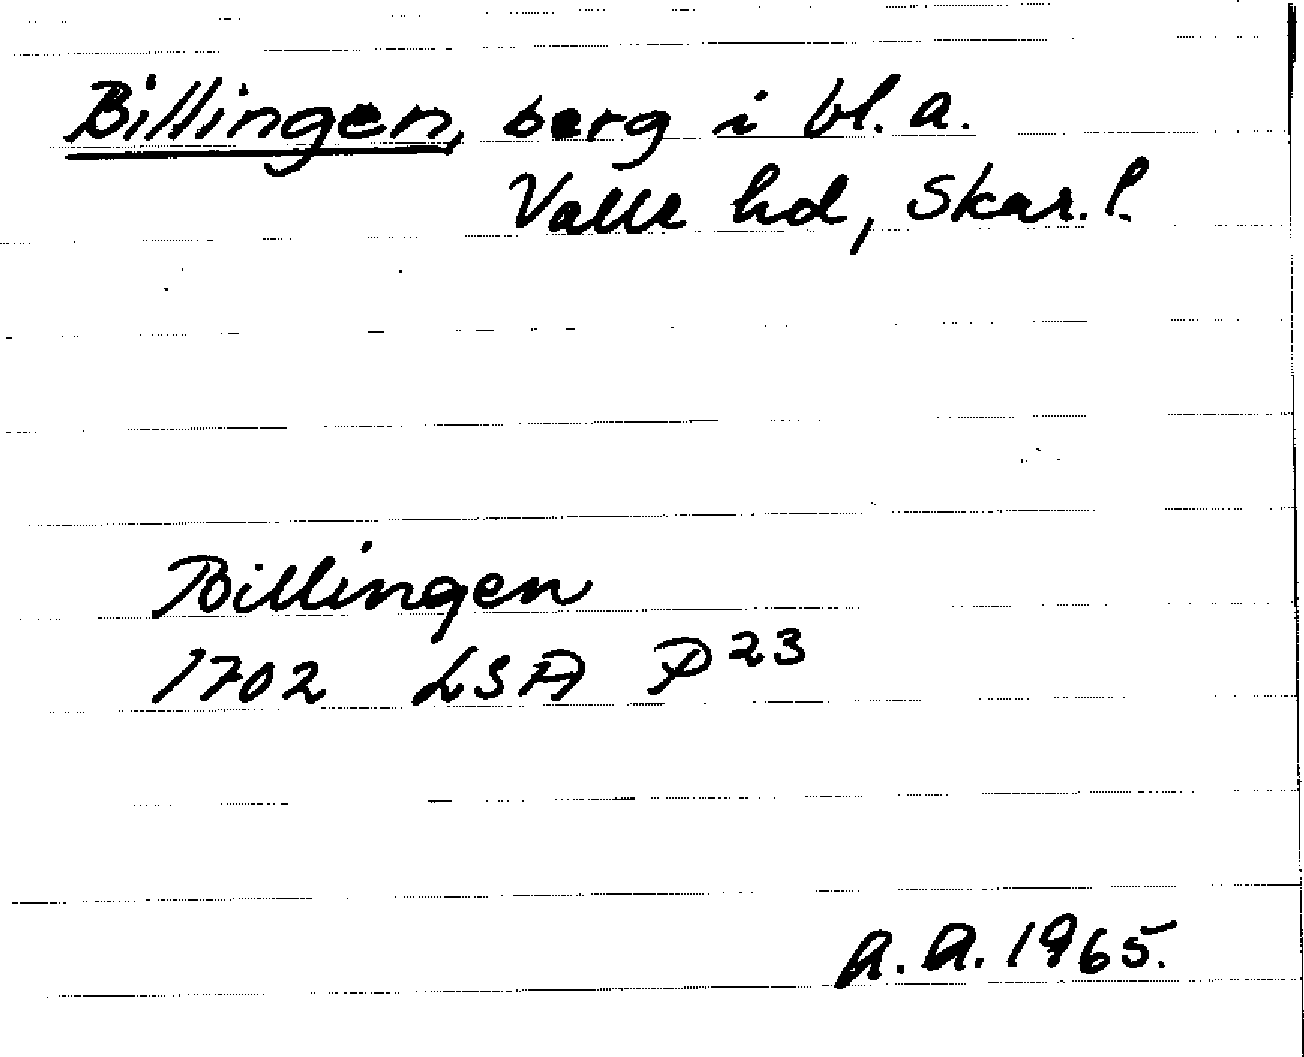 Billingen, berg i bl. a.
Valle hd, Skar. l.
Billingen
1702 LSA P23
A. A. 1965.